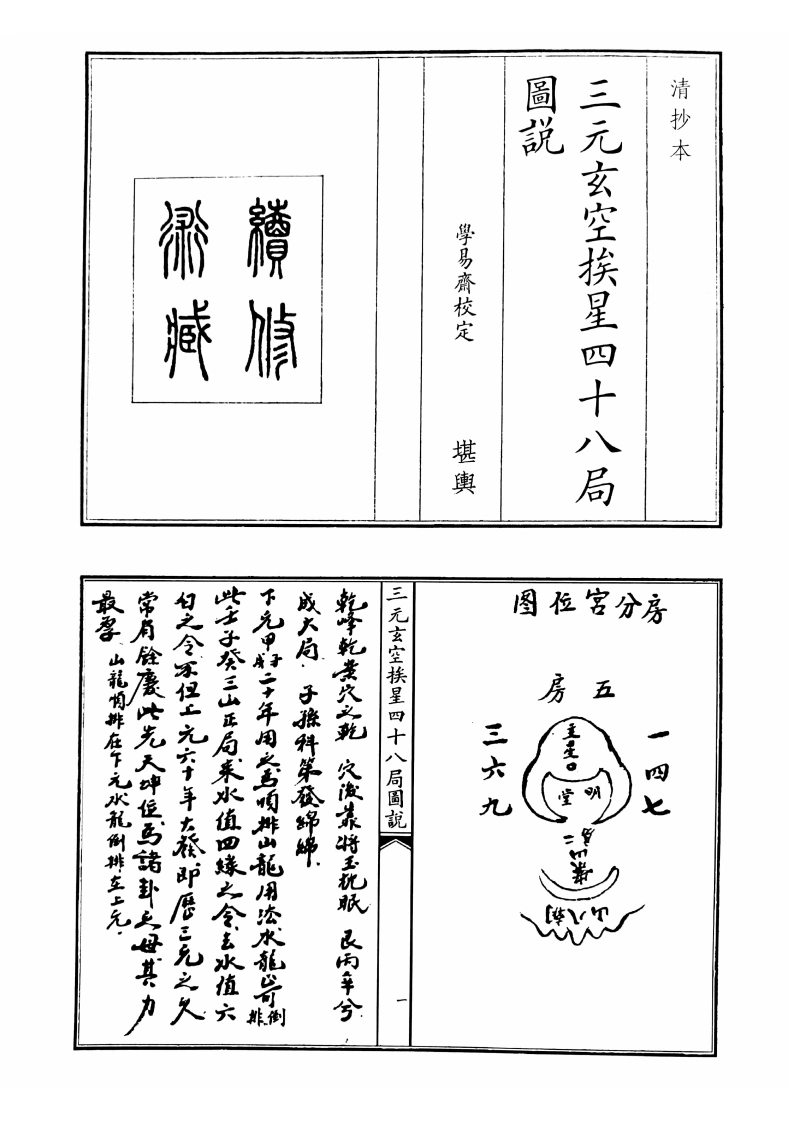 清抄本
三元玄空挨星四十八局
圖説
學易齋校定　堪輿
續修
術藏
房分宮位图
五房
一四七
三六九
主星
明堂
案山二
朝八山
三元玄空挨星四十八局圖說
一
乾峰乾黄穴之乾　穴後叢將玉枕眠　艮丙辛兮
成大局．子孫科第發綿綿．
下元甲子戌二十年用之爲順排山龍用法水龍皆可倒排
此壬子癸三山正局來水值四綠之令去水值六
白之令不但上元六十年大發即歷三元之久
常有餘慶此先天坤位爲諸卦之母其力
最厚．山龍順排在下元水龍倒排在上元．